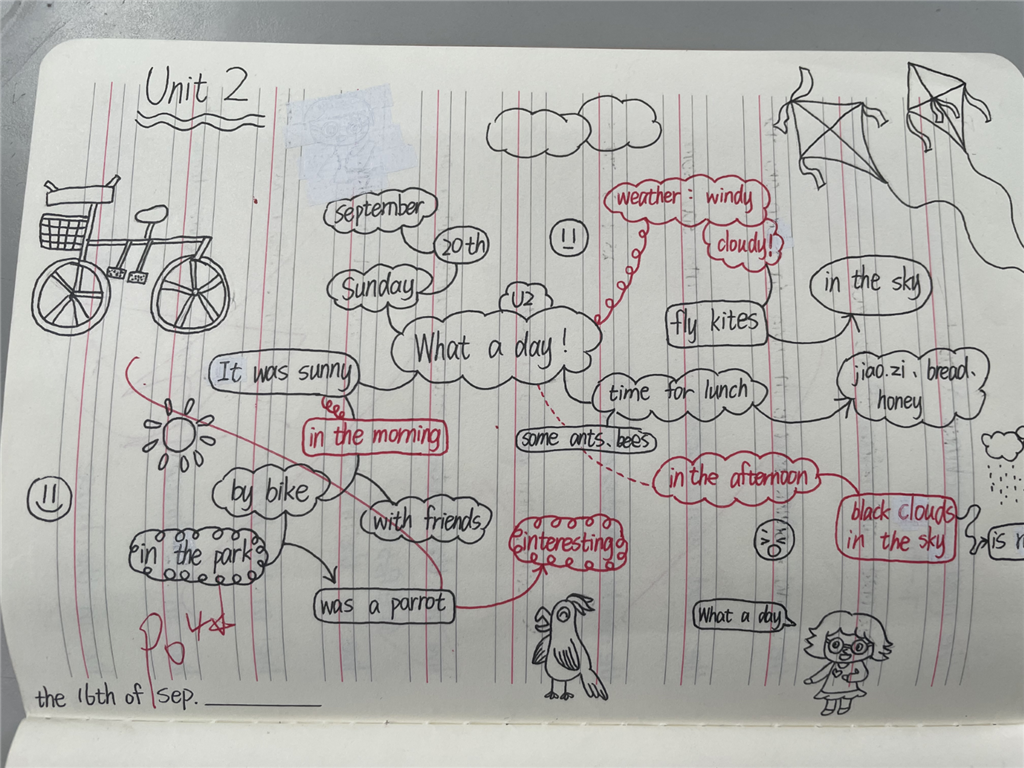 Unit 2
September
20th
Sunday
U2
What a day!
weather: windy
cloudy!
fly kites
in the sky
It was sunny
in the morning
time for lunch
jiao.zi、bread、
honey
some ants、bees
by bike
with friends
in the park
was a parrot
interesting
in the afternoon
black clouds
in the sky
is
What a day
the 16th of Sep.